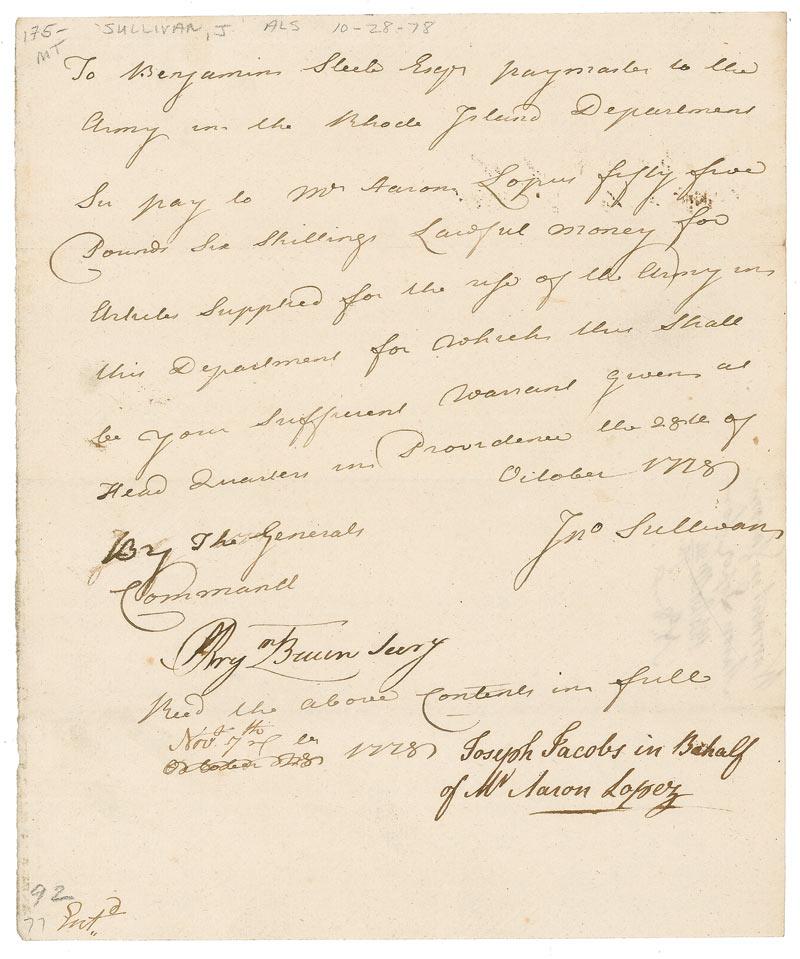 175-
MT
SULLIVAN, J ALS 10-28-78
To Benjamin Steele Esqr paymaster to the
Army in the Rhode Island Department
Sir pay to Mr Aaron Lopus fifty five
Pounds Six Shillings Lawful money for
Articles Supplied for the use of the Army in
this Department for which this Shall
be your Sufficient Warrant given at
Head Quarters in Providence the 28th of
October 1778
Jno Sullivan
By The Generals
Command
Secry
Recd the above Contents in full
Novr 7th
1778
Joseph Jacobs in Behalf
of Mr Aaron Lopez
92
77
Entd